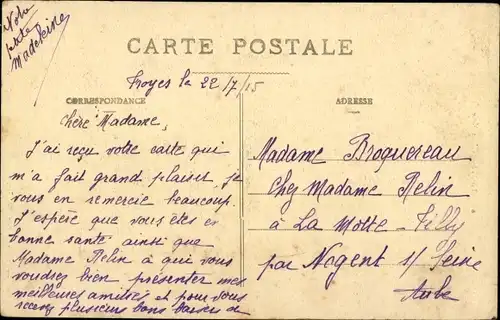 Notre
petite
Madeleine
CARTE POSTALE
Troyes le 22/7/15
CORRESPONDANCE
ADRESSE
Chère Madame,
J'ai reçu votre carte qui
m'a fait grand plaisir, je
vous en remercie beaucoup.
J'espère que vous êtes en
bonne santé ainsi que
Madame Relin à qui vous
voudrez bien présenter mes
meilleures amitiés et pour vous
recevez plusieurs bons baisers de
Madame Broquereau
Chez Madame Relin
à La Motte-Tilly
par Nogent s/ Seine
Aube